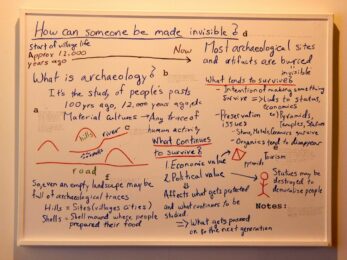 How can someone be made invisible? d
Start of village life
Approx 12,000
years ago
Now
Most archaeological sites
and artifacts are buried
invisible
What is archaeology? b
It's the study of people's pasts
100 yrs ago, 12,000 years ago, etc
Material cultures → Any trace of
human activity
a
hills
river c
road f
So, even an empty landscape may be
full of archaeological traces
Hills = Sites (villages cities)
Shells = Shell mound where people
prepared their food
What continues
to survive?
1. Economic value
2. Political value
Affects what gets protected
and what continues to be
studied.
⇒ What gets passed
on to the next generation
What tends to survive?
- Intention of making something
survive ⇒ Links to status,
economics
- Preservation
issues
Pyramids,
Temples, Statues
- Stone, Metals, Ceramics survive
- Organics tend to disappear
Tourism
pyramids
Statues may be
destroyed to
demoralise people.
Notes: